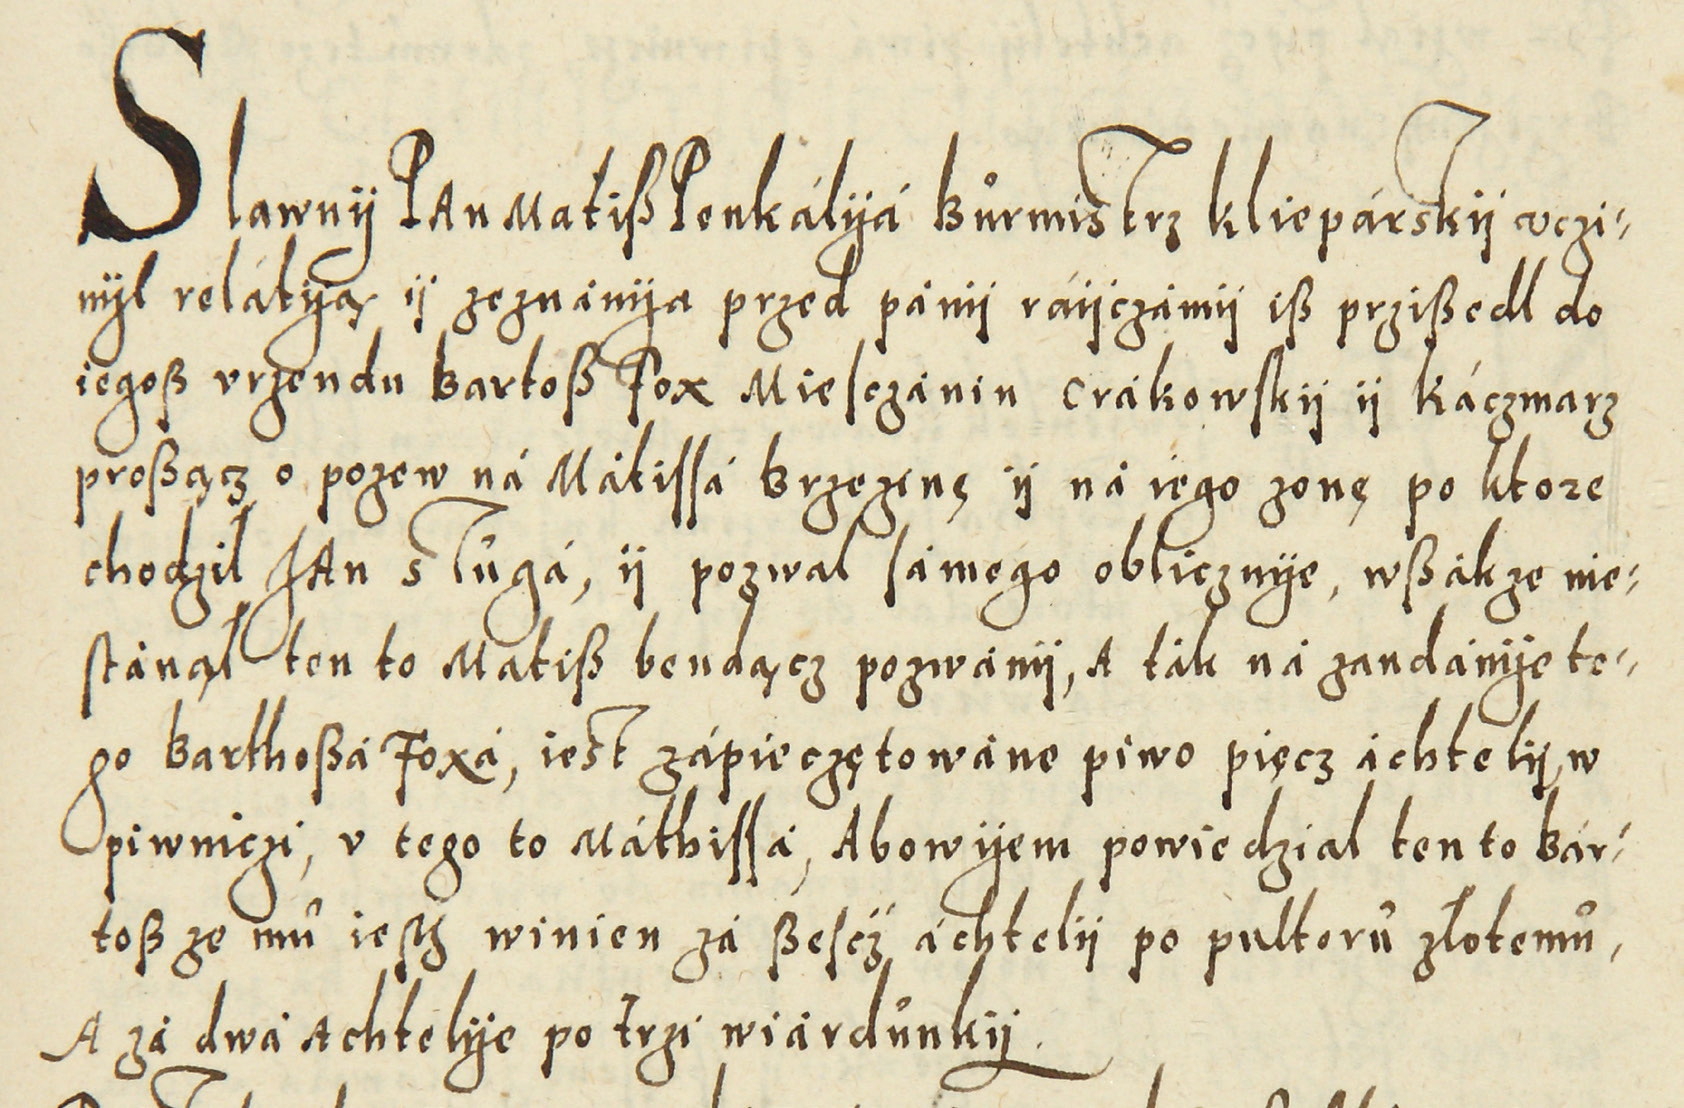 Slawnÿ PAn Matiß Penkálÿá Bůrmistrz kliepárskÿ vczi-
nÿl relátÿą ÿ zeznánÿa przed pánÿ ráÿczámÿ iß przißedl do
iegoß vrzendu Bartoß Fox Miesczánin Crákowskÿ ÿ Káczmarz
proßącz o pozew ná Mátissá Brzezinę ÿ ná iego zonę po ktore
chodzil JAn slůgá, ÿ pozwal sámego oblicznÿe, wßákze nie-
stánął ten to Matiß bendącz pozwánÿ, A ták ná zandánÿe te-
go Barthoßá Foxá, iest zápieczętowáne piwo pięcz áchtelÿ w
piwniczi, v tego to Máthissá, Abowÿem powiedzial ten to Bár-
toß ze mů iest winien zá ßescz áchtelÿ po pultorů złotemů,
A zá dwá Achtelÿe po trzi wiárdůnkÿ.